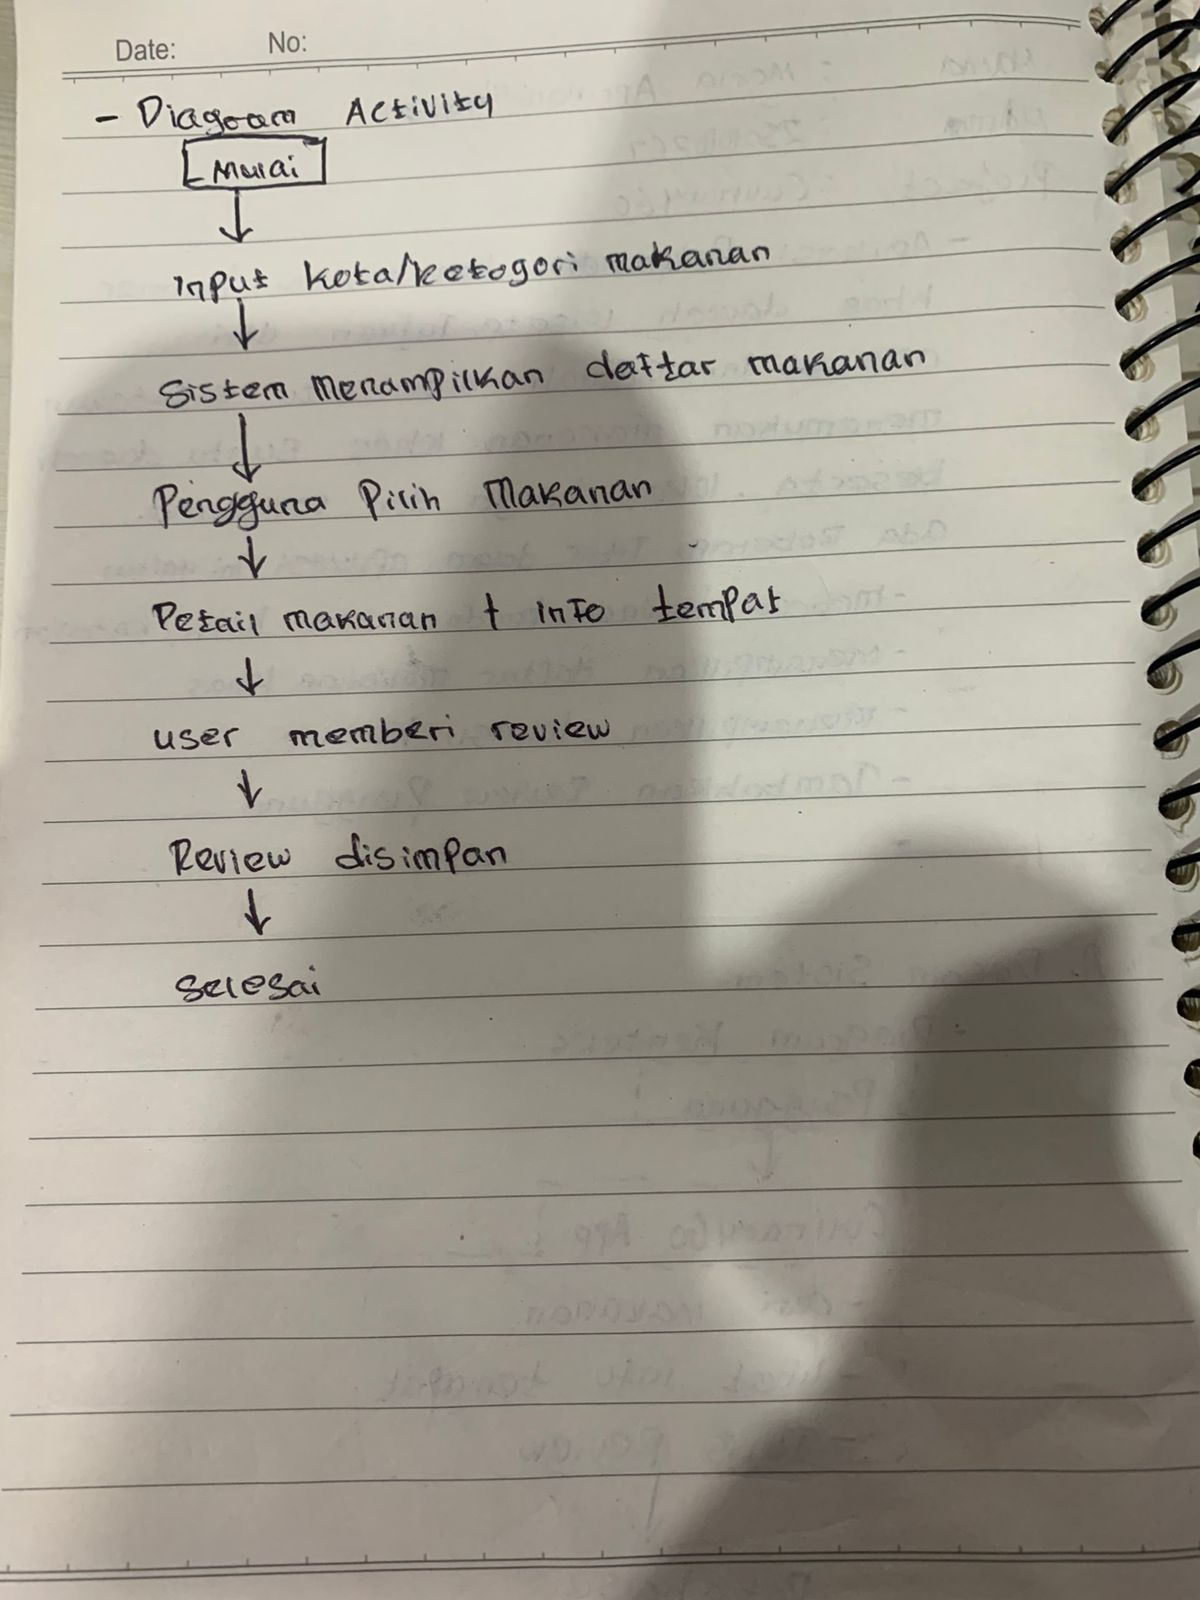 Date: No:
- Diagram Activity
Mulai
↓
Input kota/ketogori makanan
↓
Sistem menampilkan daftar makanan
↓
Pengguna Pilih Makanan
↓
Detail makanan + info tempat
↓
user memberi review
↓
Review disimpan
↓
Selesai